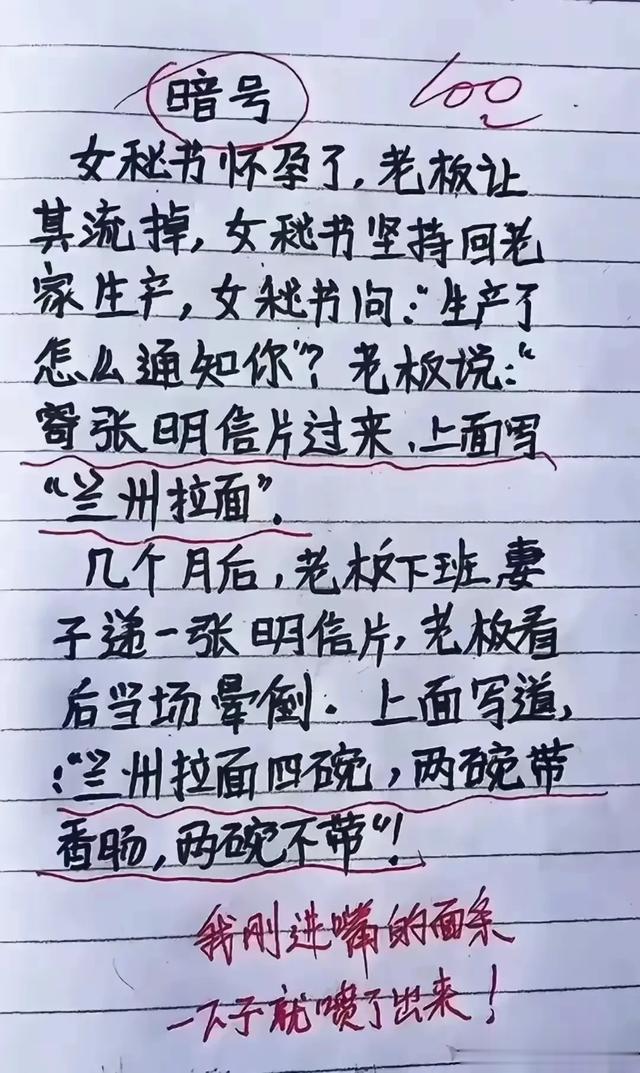 暗号
100
女秘书怀孕了,老板让
其流掉,女秘书坚持回老
家生产,女秘书问:“生产了
怎么通知你”?老板说:“
寄张明信片过来、上面写
“兰州拉面”.
几个月后,老板下班妻
子递一张明信片,老板看
后当场晕倒.上面写道,
:“兰州拉面四碗,两碗带
香肠,两碗不带”!
我刚进嘴的面条
一下子就喷了出来!